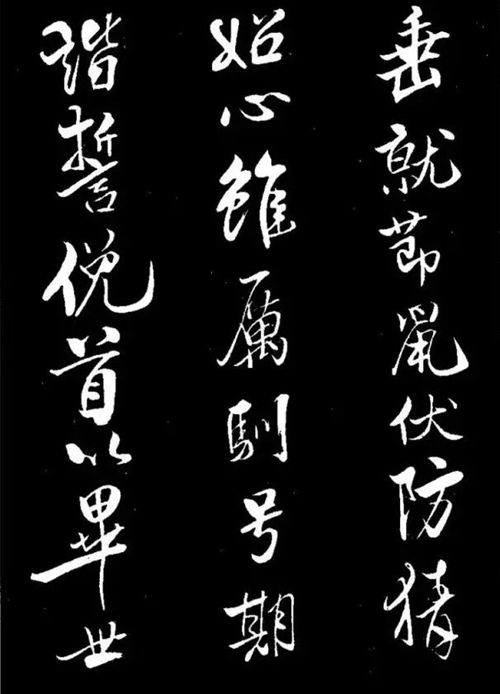 垂就節鼠伏防猜
妬心雖厲馴号期
誓俛首以畢世